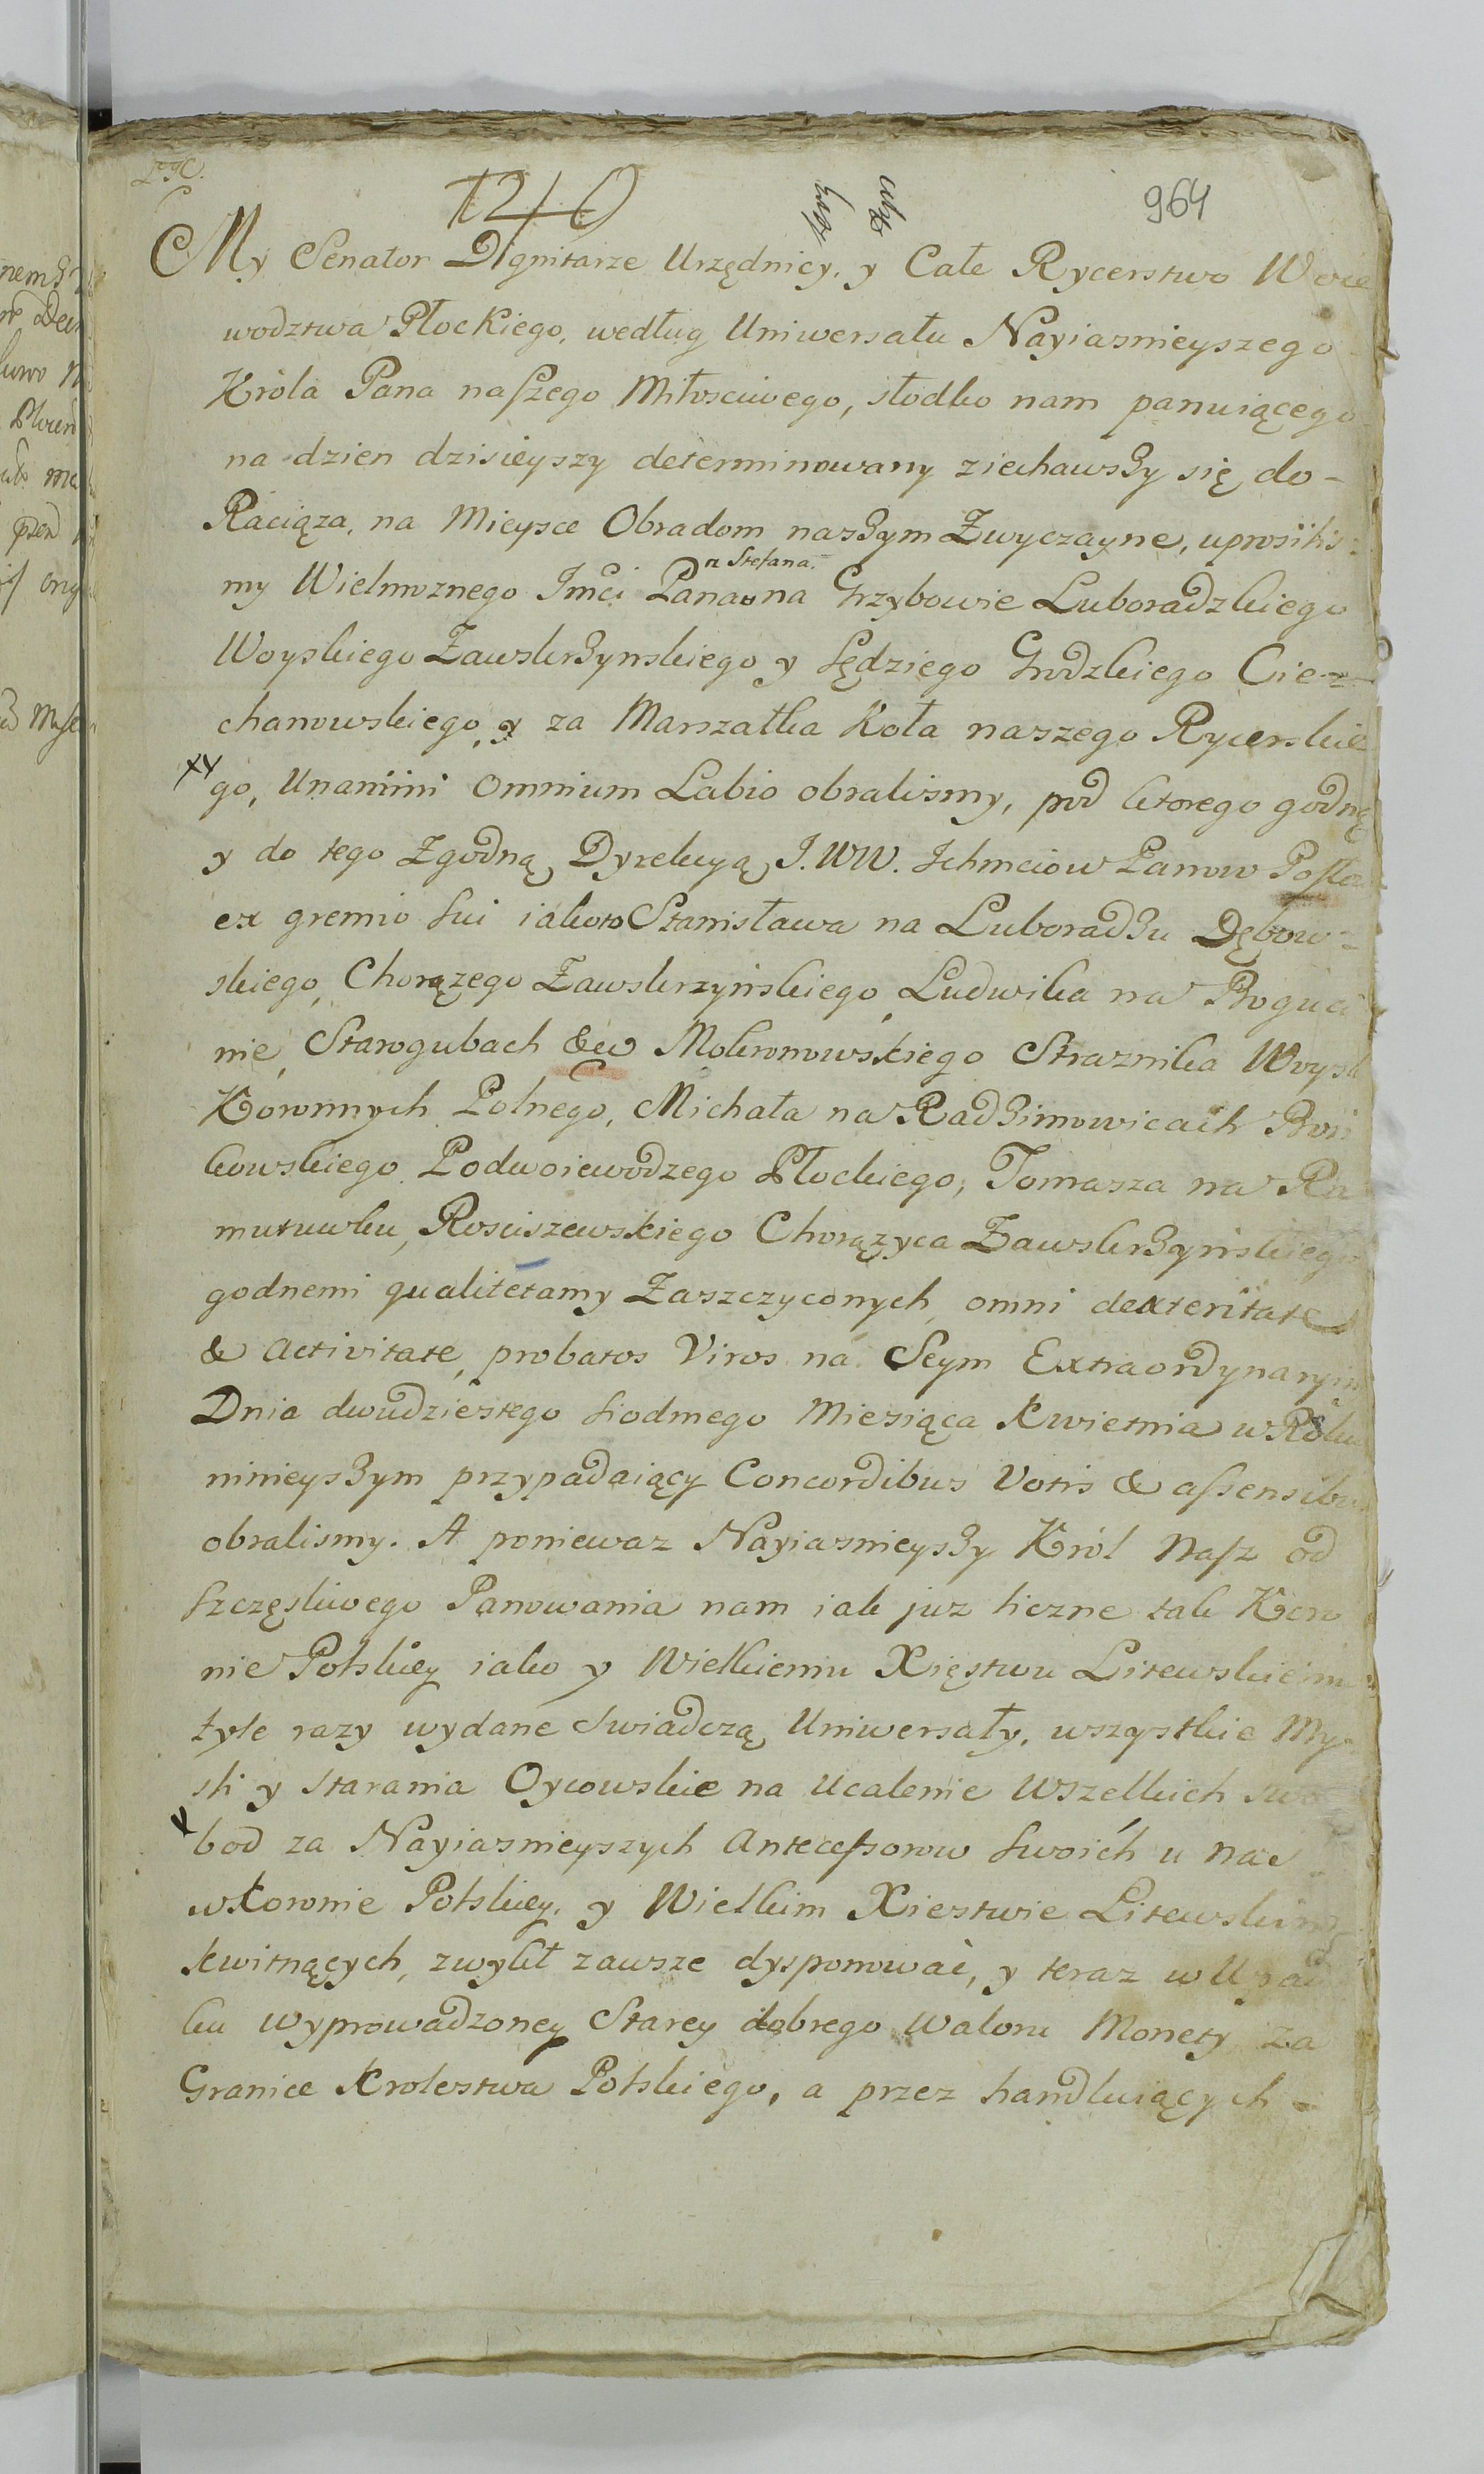 964
My Senator Dignitarze Urzędnicy, y Całe Rycerstwo Woie
wodztwa Płockiego, według Uniwersału Nayiasnieyszego
Króla Pana naszego Miłosciwego, słodko nam panuiącego
na dzien dzisieyszy determinowany ziechawszy się do-
Raciąża, na Mieysce Obradom naszym Zwyczayne, uprosilis=
n Stefana
my Wielmoznego Jmci Pana na Grzybowie Luboradzkiego
Woyskiego Zawskrzynskiego y Sędziego Grodzkiego Cie-
chanowskiego, y za Marszałka Koła naszego Rycerskie
go, Unanimi Omnium Labio obralismy, pod ktorego godną
y do tego Zgodną Dyrekcyą J. WW. Ichmciow Panow Posłow
ex gremio Sui iakoto Stanisława na Luboradzu Dębow=
skiego, Chorązego Zawskrzyńskiego, Ludwika na Boguci
nie, Starogubach &c Mokronowskiego Straznika Woysk
Koronnych Polnego, Michała na Radzimowicach Boń
kowskiego Podwoiewodzego Płockiego, Tomasza na Ra
mutuwku, Rosciszewskiego Chorązyca Zawskrzyńskiego
godnemi qualitetamy Zaszczyconych omni dexteritate
& activitate, probatos Viros na Seym Extraordynaryiny
Dnia dwudziestego Siodmego Miesiąca Kwietnia w Roku
ninieyszym przypadaiący Concordibus Votis & assensibus
obralismy. A poniewaz Nayiasnieyszy Król Nasz od
Szczęsliwego Panowania nam iak juz liczne tak Koro
nie Polskiey iako y Wielkiemu Xięstwu Litewskiemu
tyle razy wydane swiadczą Uniwersały, wszystkie My-
sli y starania Oycowskie na Ucalenie Wszelkich swo
bod za Nayiasnieyszych Antecessorow Swoich u nas
w Koronie Polskiey, y Wielkim Xiestwie Litewskim
kwitnących, zwykł zawsze dysponować, y teraz w Upad
ku wyprowadzoney Starey dobrego Waloru Monety za
Granice Krolestwa Polskiego, a przez handluiących -